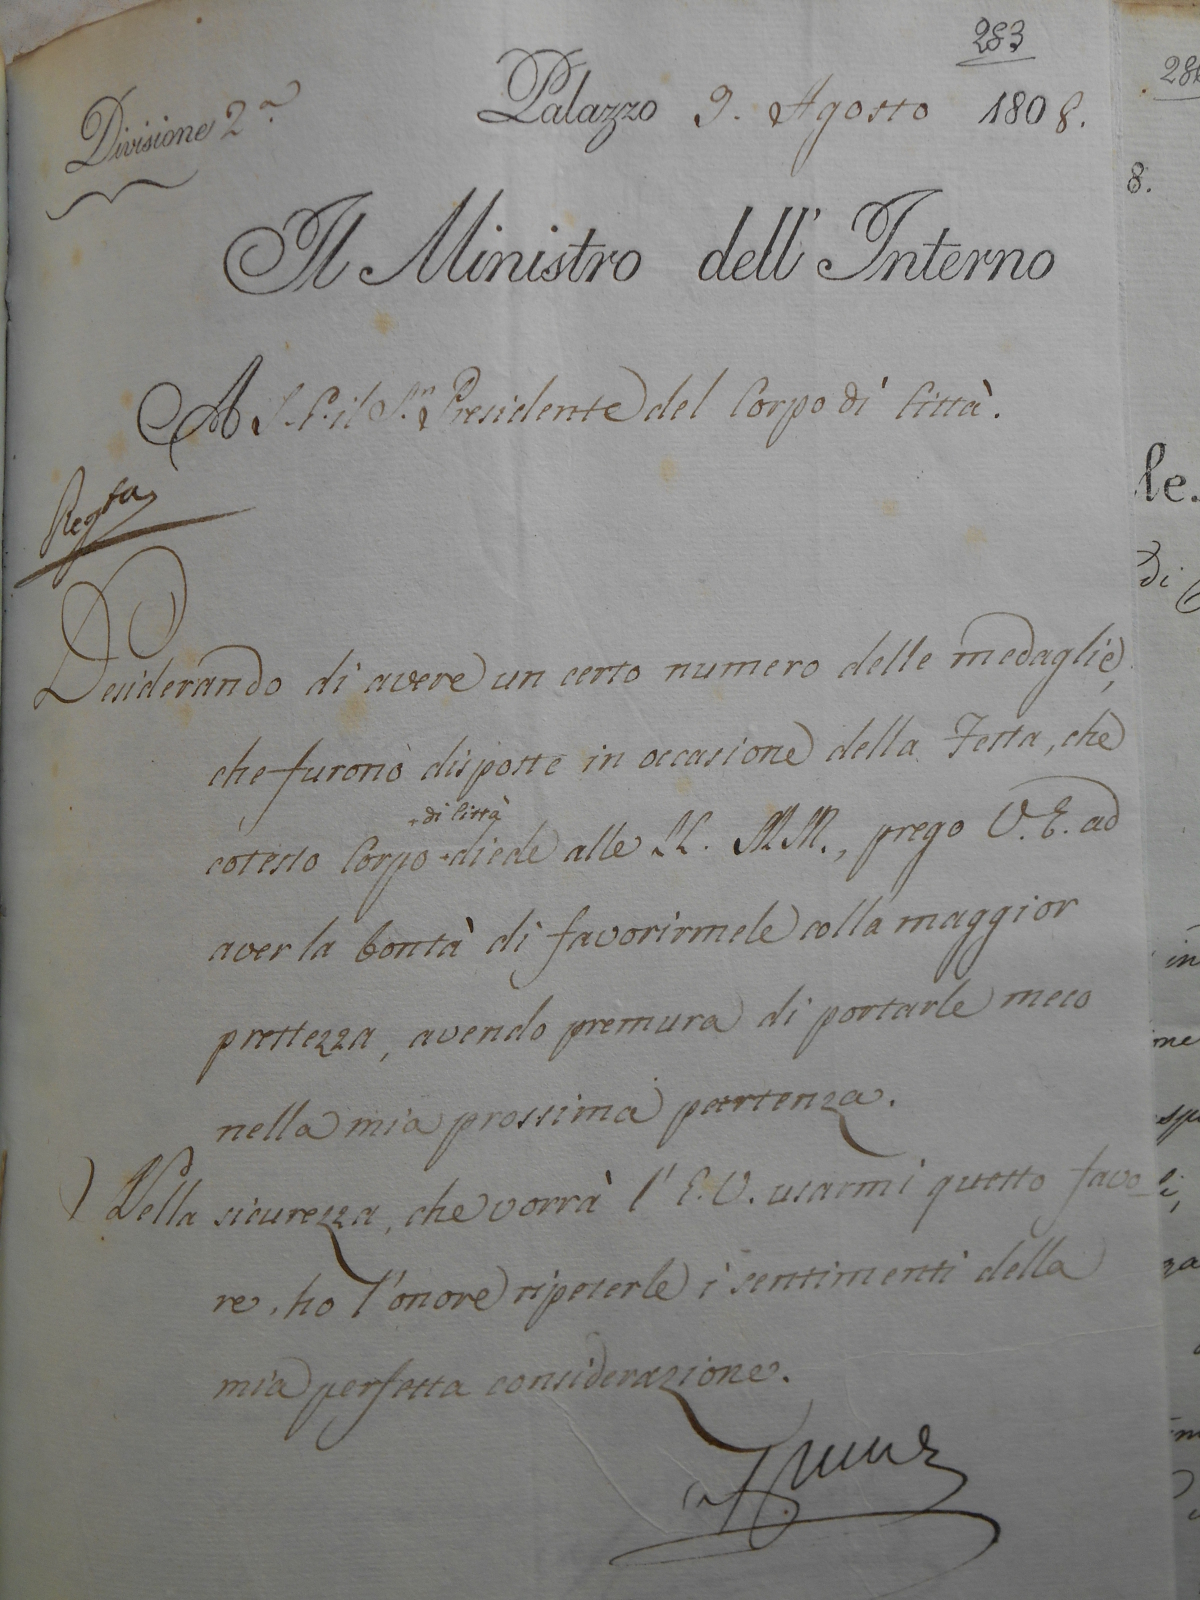 283
Divisione 2.a
Palazzo 9. Agosto 1808.
Il Ministro dell' Interno
A S. E. il S.r Presidente del Corpo di Città.
Reg.ta
Desiderando di avere un certo numero delle medaglie,
che furono disposte in occasione della Festa, che
di Città
cotesto Corpo diede alle LL. MM., prego V. E. ad
aver la bontà di favorirmele colla maggior
prestezza, avendo premura di portarle meco
nella mia prossima partenza.
Nella sicurezza, che vorrà l' E. V. usarmi questo favo-
re, ho l'onore ripeterle i sentimenti della
mia perfetta considerazione.
8.
le.
di
in